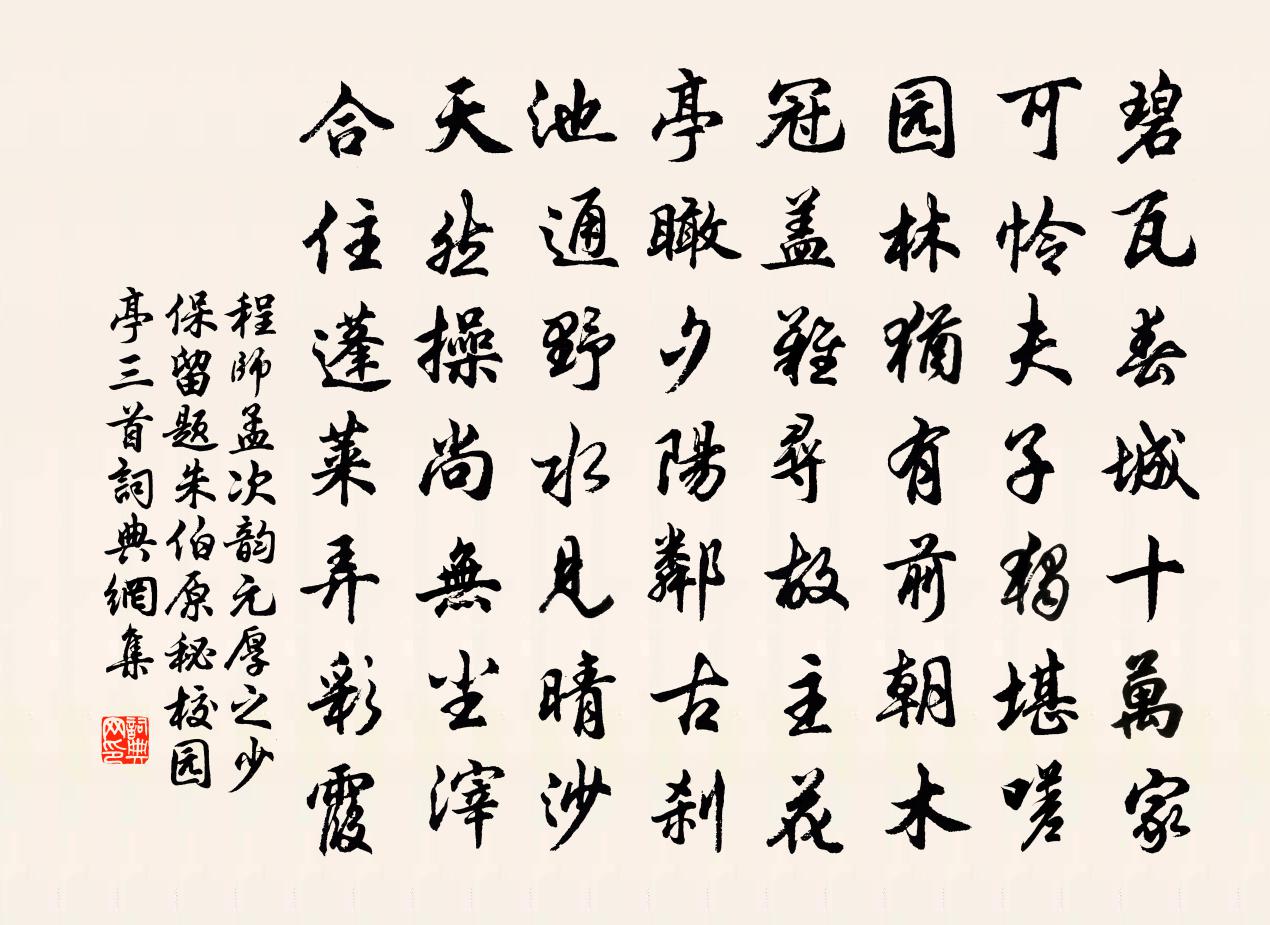 碧瓦春城十萬家
可怜夫子獨堪嗟
园林猶有前朝木
冠盖難尋故主花
亭瞰夕陽鄰古刹
池通野水見晴沙
天然操尚無尘滓
合住蓬莱弄彩霞
程師孟次韵元厚之少
保留题朱伯原秘校园
亭三首詞典網集
詞典网印